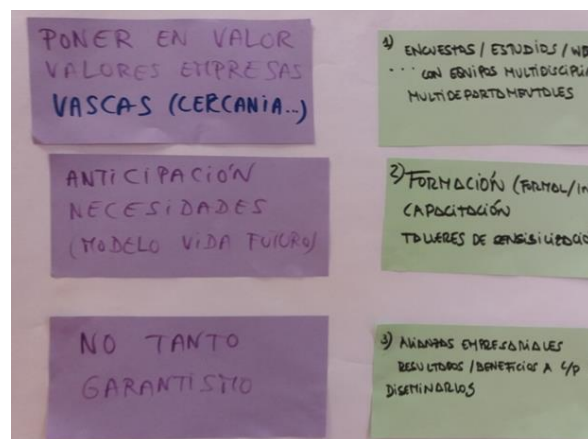 PONER EN VALOR
VALORES EMPRESAS
VASCAS (CERCANIA...)
ANTICIPACIÓN
NECESIDADES
(MODELO VIDA FUTURO)
NO TANTO
GARANTISMO
1) ENCUESTAS / ESTUDIOS /
... CON EQUIPOS
MULTIDEPARTOMENTOLES
2) FORMACIÓN (FORMAL/
CAPACITACIÓN
TALLERES DE
3) ALIANZAS EMPRESARIALES
RESULTADOS / BENEFICIOS A C/P
DISEMINARLOS